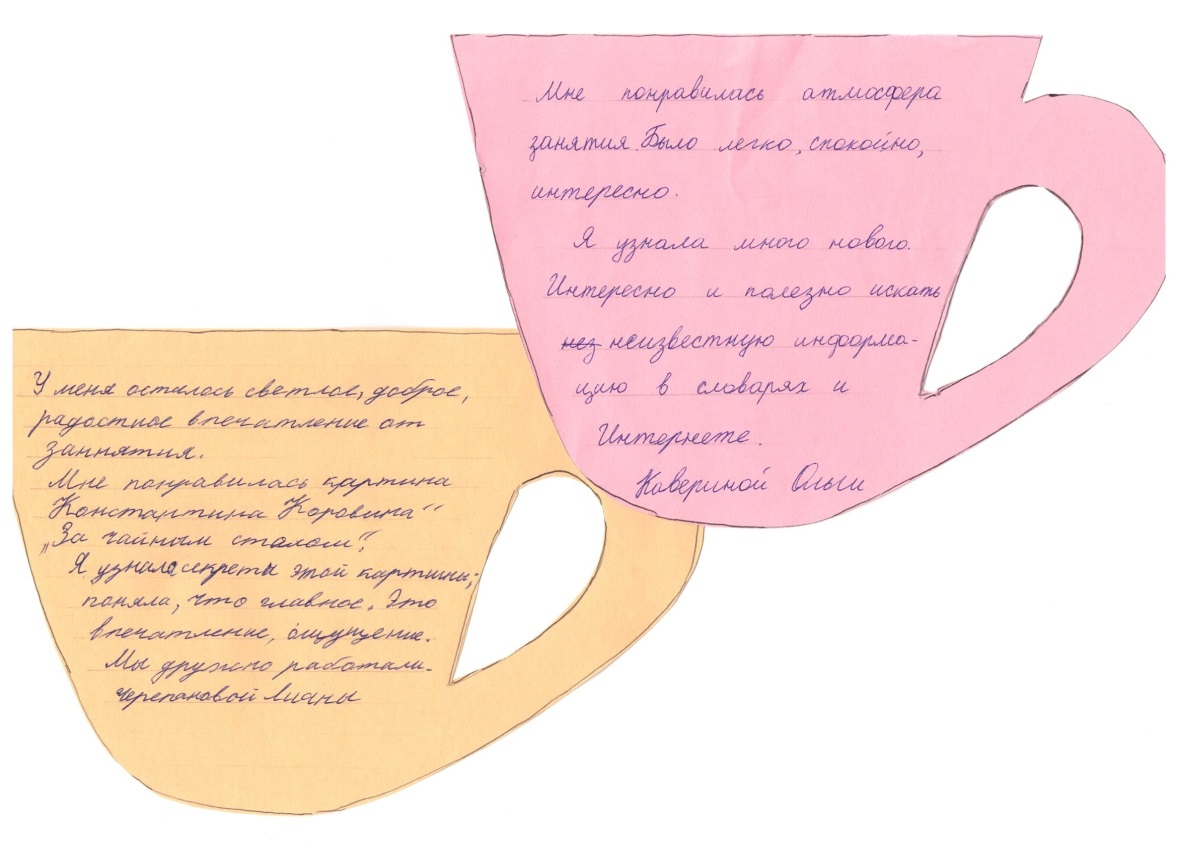 Мне понравилась атмосфера
занятия. Было легко, спокойно,
интересно.
Я узнала много нового.
Интересно и полезно искать
нез неизвестную информа-
цию в словарях и
Интернете.
Кавериной Ольги
У меня осталось светлое, доброе,
радостное впечатление от
заннятия.
Мне понравилась картина
Константина Коровина"
„За чайным столом".
Я узнала секреты этой картины;
поняла, что главное. Это
впечатление, ощущение.
Мы дружно работали.
Черепановой Лианы